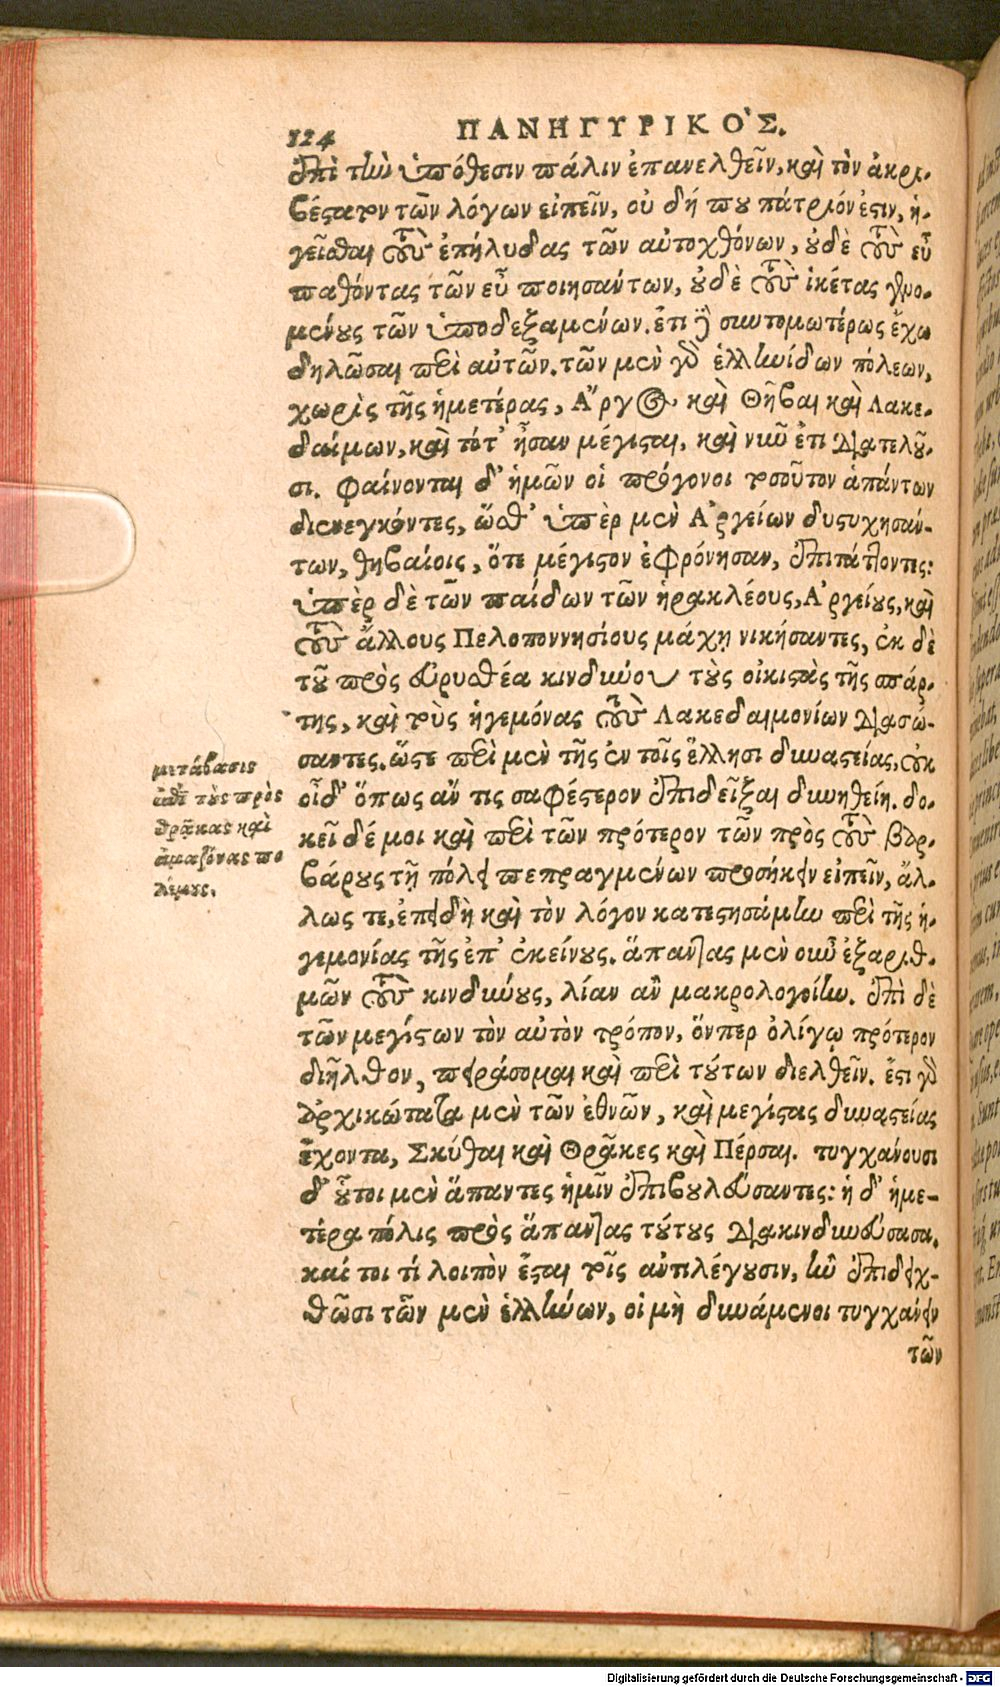 124
ΠΑΝΗΓΥΡΙΚΟ᾽Σ.
ἐπὶ τὴν ὑπόθεσιν πάλιν ἐπανελθεῖν, καὶ τὸν ἀκρι-
βέστατον τῶν λόγων εἰπεῖν, οὐ δή που πάτριόν ἐστιν, ἡ-
γεῖσθαι τοὺς ἐπήλυδας τῶν αὐτοχθόνων, οὐδὲ τοὺς εὖ
παθόντας τῶν εὖ ποιησάντων, οὐδὲ τοὺς ἱκέτας γενο-
μένους τῶν ὑποδεξαμένων. ἔτι δὲ συντομωτέρως ἔχω
δηλῶσαι περὶ αὐτῶν. τῶν μὲν γὰρ ἑλληνίδων πόλεων,
χωρὶς τῆς ἡμετέρας, Ἄργος καὶ Θῆβαι καὶ Λακε-
δαίμων, καὶ τότ᾽ ἦσαν μέγισται, καὶ νῦν ἔτι διατελοῦ-
σι. φαίνονται δ᾽ ἡμῶν οἱ πρόγονοι τοσοῦτον ἁπάντων
διενεγκόντες, ὥσθ᾽ ὑπὲρ μὲν Ἀργείων δυστυχησάν-
των, θηβαίοις, ὅτε μέγιστον ἐφρόνησαν, ἐπιτάττοντες:
ὑπὲρ δὲ τῶν παίδων τῶν ἡρακλέους, Ἀργείους, καὶ
τοὺς ἄλλους Πελοποννησίους μάχῃ νικήσαντες, ἐκ δὲ
τοῦ πρὸς Εὐρυσθέα κινδύνου τοὺς οἰκιστὰς τῆς σπάρ-
της, καὶ τοὺς ἡγεμόνας τοὺς Λακεδαιμονίων διασώ-
σαντες. ὥστε περὶ μὲν τῆς ἐν τοῖς ἕλλησι δυναστείας, οὐκ
οἶδ᾽ ὅπως ἄν τις σαφέστερον ἐπιδεῖξαι δυνηθείη. δο-
κεῖ δέ μοι καὶ περὶ τῶν πρότερον τῶν πρὸς τοὺς βαρ-
βάρους τῇ πόλει πεπραγμένων προσήκειν εἰπεῖν, ἄλ-
λως τε, ἐπειδὴ καὶ τὸν λόγον κατεστησάμην περὶ τῆς ἡ-
γεμονίας τῆς ἐπ᾽ ἐκείνους. ἅπαντας μὲν οὖν ἐξαριθ-
μῶν τοὺς κινδύνους, λίαν ἂν μακρολογοίην. ἐπὶ δὲ
τῶν μεγίστων τὸν αὐτὸν τρόπον, ὅνπερ ὀλίγῳ πρότερον
διῆλθον, πειράσομαι καὶ περὶ τούτων διελθεῖν. ἔστι γὰρ
ἀρχικώτατα μὲν τῶν ἐθνῶν, καὶ μεγίστας δυναστείας
ἔχοντα, Σκύθαι καὶ Θρᾷκες καὶ Πέρσαι. τυγχάνουσι
δ᾽ οὗτοι μὲν ἅπαντες ἡμῖν ἐπιβουλεύσαντες: ἡ δ᾽ ἡμε-
τέρα πόλις πρὸς ἅπαντας τούτους διακινδυνεύσασα.
καί τοι τί λοιπὸν ἔσται τοῖς ἀντιλέγουσιν, ἢν ἐπιδειχ-
θῶσι τῶν μὲν ἑλλήνων, οἱ μὴ δυνάμενοι τυγχάνειν
τῶν
μετάβασις
ἐπὶ τοὺς πρὸς
θρᾷκας καὶ
ἀμαζόνας πο
λέμους.
Digitalisierung gefördert durch die Deutsche Forschungsgemeinschaft - DFG